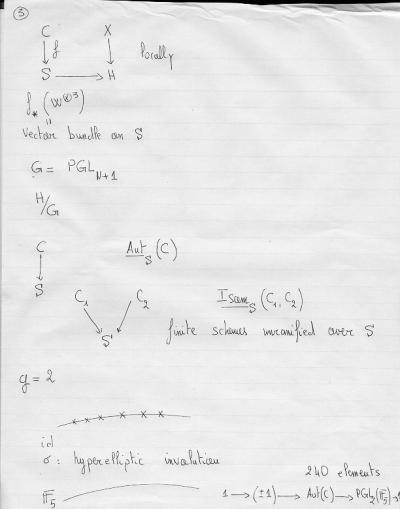 ③
C X
f locally
S H
f_* (ω^{⊗3})
"
vector bundle on S
G = PGL_{N+1}
H/G
C Aut_S (C)
S
C_1 C_2 Isom_S (C_1, C_2)
S finite schemes unramified over S
g = 2
x x x x x x
id
σ : hyperelliptic involution
240 elements
𝔽_5 1 → (±1) → Aut(C) → PGL_2(𝔽_5) → 1